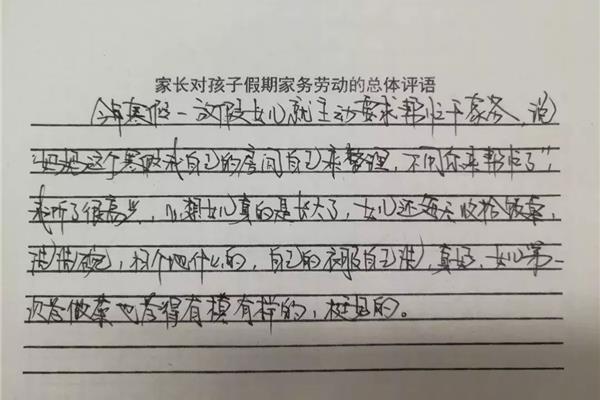 家长对孩子假期家务劳动的总体评语
今年寒假一放假女儿就主动要求帮忙干家务，说
“妈妈这个寒假我自己的房间自己来整理，不用你来帮忙了”，
我听了很高兴，心想女儿真的是长大了，女儿还每天收拾饭桌，
洗洗碗，扫个地什么的，自己的衣服自己洗，真好，女儿第一
次学做菜也学得有模有样的，挺是的。